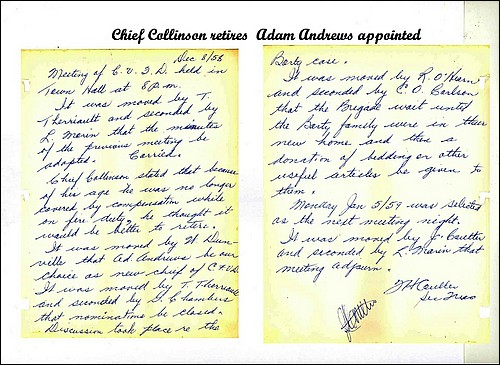 Chief Collinson retires Adam Andrews appointed
Dec 8/58
Meeting of C.V.F.D. held in
Town Hall at 8 P.m.
It was moved by T.
Therriault and seconded by
L. Marin that the minutes
of the previous meeting be
adopted. Carried.
Chief Collinson stated that because
of his age he was no longer
covered by compensation while
on fire duty, he thought it
would be better to retire.
It was moved by W. Dunn-
ville that Ad. Andrews be our
choice as new chief of C.V.F.D.
It was moved by T. Therriault
and seconded by G. Chambers
that nominations be closed.
Discussion took place re the
Berty case.
It was moved by R. O'Hearn
and seconded by C.O. Carlson
that the Bregade wait until
the Berty family were in their
new home and then a
donation of bedding or other
useful articles be given to
them.
Monday Jan 5/59 was selected
as the next meeting night.
It was moved by J. Coulter
and seconded by L. Marin that
meeting adjourn.
Coulter
Sec Treas